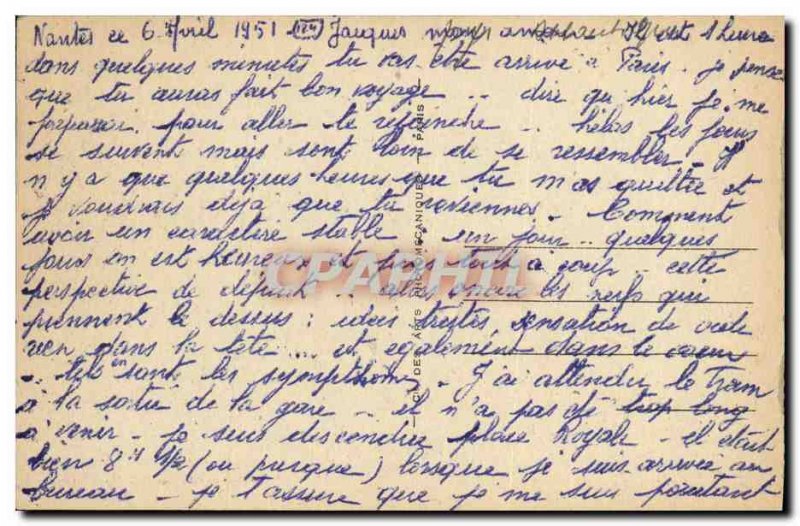 Nantes ce 6 Avril 1951 Jacques mon Il est 1 heure
dans quelques minutes tu vas être arrivé à Paris. je pense
que tu auras fait bon voyage .. dire qu'hier je me
préparais pour aller te rejoindre .. hélas les jours
se suivent mais sont loin de se ressembler - Il
n'y a que quelques heures que tu m'as quittée et
je voudrais déjà que tu reviennes. Comment
avoir un caractère stable. un jour .. quelques
jours on est heureux et puis tout à coup .. cette
perspective de départ .. alors encore les nerfs qui
prennent le dessus : idées tristes, sensation de
rien dans la tête ... et également dans le coeur
.. tels sont les symptômes. J'ai attendu le Tram
à la sortie de la gare - il n'a pas été trop long
à venir - je suis descendue place Royale - il était
bien 8h 1/2 (ou presque) lorsque je suis arrivée au
bureau - je t'assure que je me suis pourtant
CIE DES ARTS PHOTOMÉCANIQUES - PARIS
CPARAMA